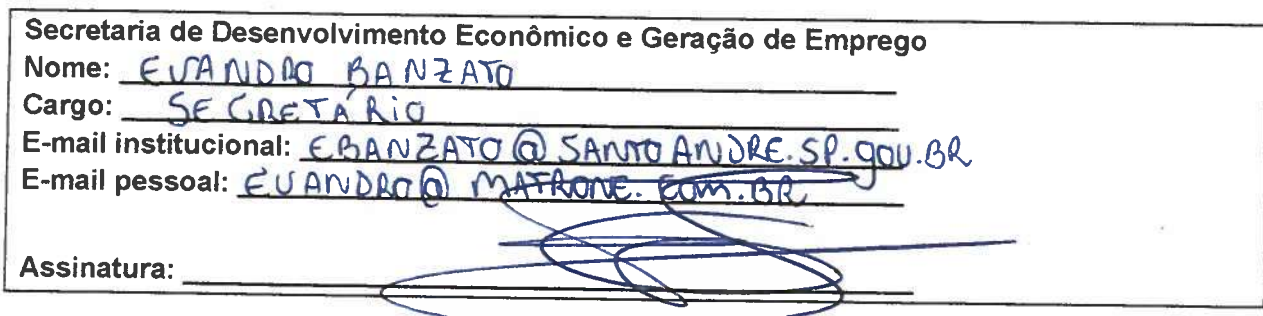 Secretaria de Desenvolvimento Econômico e Geração de Emprego
Nome: EVANDRO BANZATO
Cargo: SECRETÁRIO
E-mail institucional: EBANZATO@SANTOANDRE.SP.gov.BR
E-mail pessoal: EVANDRO@MATRONE.COM.BR
Assinatura: